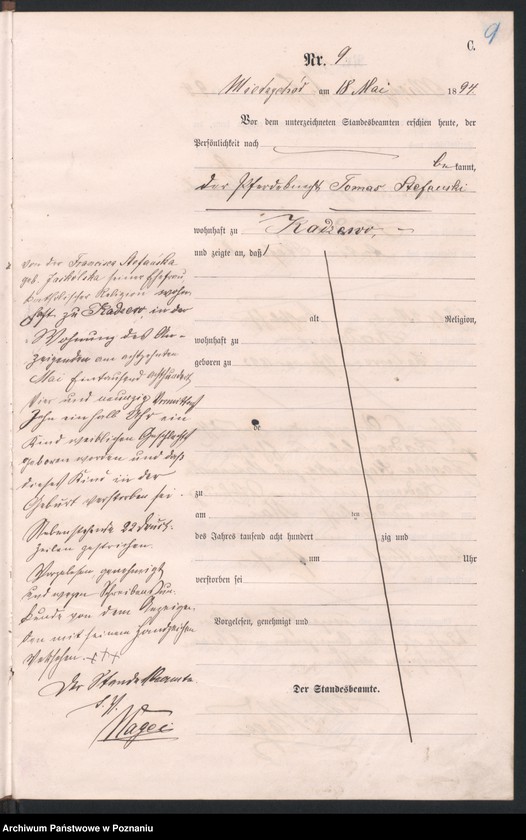 9
C.
Nr. 9
am 18 Mai 1894.
Vor dem unterzeichneten Standesbeamten erschien heute, der
Persönlichkeit nach
bekannt,
der Pferdeknecht Tomas Stefanski
wohnhaft zu
und zeigte an, daß
von der Francisca Stefanska
geb. seiner Ehefrau
katholischer Religion wohn-
haft zu in der
Wohnung des An-
zeigenden am achtzehnten
Mai Eintausend achthundert
vier und neunzig Vormittags
Zehn einhalb Uhr ein
Kind weiblichen Geschlechts
geboren worden und daß
dieses Kind in der
Geburt verstorben sei.
Nebenstehende 22 Druck-
zeilen gestrichen.
Vorgelesen, genehmigt
und wegen Schreibensun-
kunde von dem Anzeigen-
den mit seinem Handzeichen
versehen. +++
Der Standesbeamte
alt Religion,
wohnhaft zu
geboren zu
de
zu
am ten
des Jahres tausend acht hundert zig und
um Uhr
verstorben sei
Vorgelesen, genehmigt und
Der Standesbeamte.
Archiwum Państwowe w Poznaniu